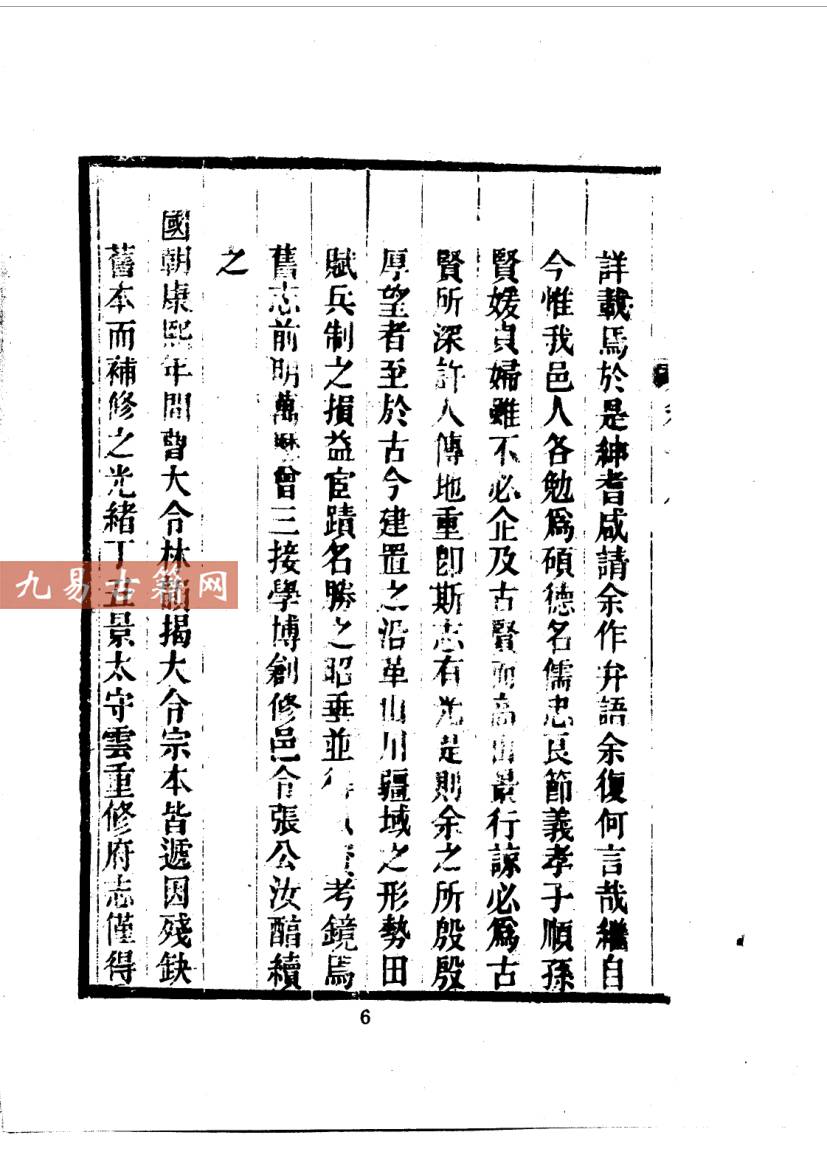 詳載焉於是紳耆咸請余作弁語余復何言哉繼自
今惟我邑人各勉爲碩德名儒忠良節義孝子順孫
賢媛貞婦雖不必企及古賢而高山景行諒必爲古
賢所深許人傳地重卽斯志有光是則余之所殷殷
厚望者至於古今建置之沿革山川疆域之形勢田
賦兵制之損益宦蹟名勝之昭垂並 考鏡焉
舊志前明萬曆曾三接學博創修邑令張公汝醞續
之
國朝康熙年間曹大令林韻揭大令宗本皆遞因殘缺
舊本而補修之光緒丁丑景太守雲重修府志僅得
九易古籍网
6